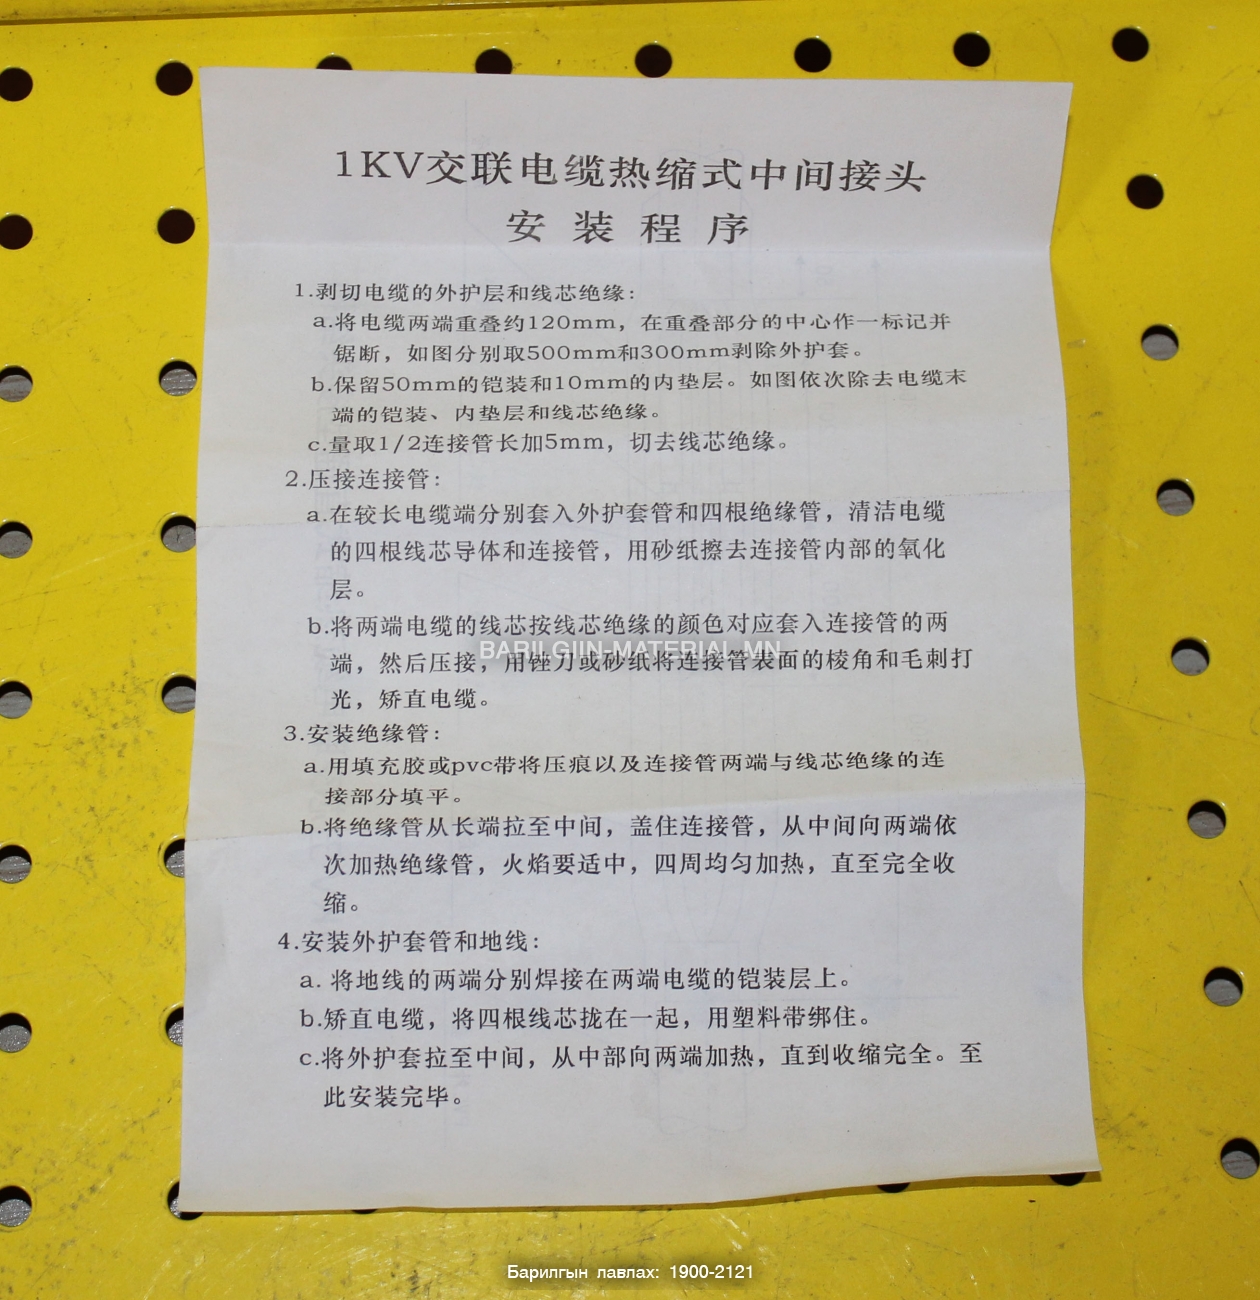 1KV交联电缆热缩式中间接头
安装程序
1.剥切电缆的外护层和线芯绝缘:
a.将电缆两端重叠约120mm，在重叠部分的中心作一标记并
锯断，如图分别取500mm和300mm剥除外护套。
b.保留50mm的铠装和10mm的内垫层。如图依次除去电缆末
端的铠装、内垫层和线芯绝缘。
c.量取1/2连接管长加5mm，切去线芯绝缘。
2.压接连接管:
a.在较长电缆端分别套入外护套管和四根绝缘管，清洁电缆
的四根线芯导体和连接管，用砂纸擦去连接管内部的氧化
层。
b.将两端电缆的线芯按线芯绝缘的颜色对应套入连接管的两
BARILGIIN-MATERIAL.MN
端，然后压接，用锉刀或砂纸将连接管表面的棱角和毛刺打
光，矫直电缆。
3.安装绝缘管:
a.用填充胶或pvc带将压痕以及连接管两端与线芯绝缘的连
接部分填平。
b.将绝缘管从长端拉至中间，盖住连接管，从中间向两端依
次加热绝缘管，火焰要适中，四周均匀加热，直至完全收
缩。
4.安装外护套管和地线:
a. 将地线的两端分别焊接在两端电缆的铠装层上。
b.矫直电缆，将四根线芯拢在一起，用塑料带绑住。
c.将外护套拉至中间，从中部向两端加热，直到收缩完全。至
此安装完毕。
Барилгын лавлах: 1900-2121